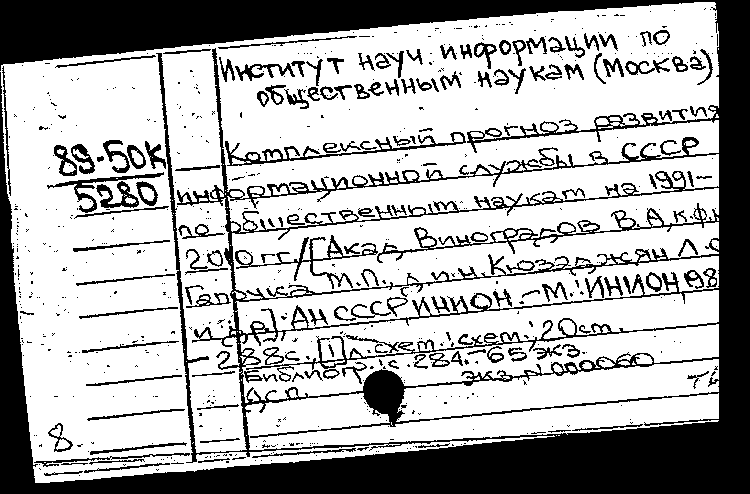 Институт науч. информации по
общественным наукам (Москва)
89-50К
5280
Комплексный прогноз развития
информационной службы в СССР
по общественным наукам на 1991-
2010 гг. / [Акад. Виноградов В.А., к.ф.н.
Гапочка М.П., д.и.н. Кюзаджян Л.С.
и др.]; АН СССР, ИНИОН. – М.: ИНИОН, 198
– 288с., [1] л. схем.: схем.; 20 см.
Библиогр.: с. 284. 65 экз.
Экз. N 000060
ДСП.
8